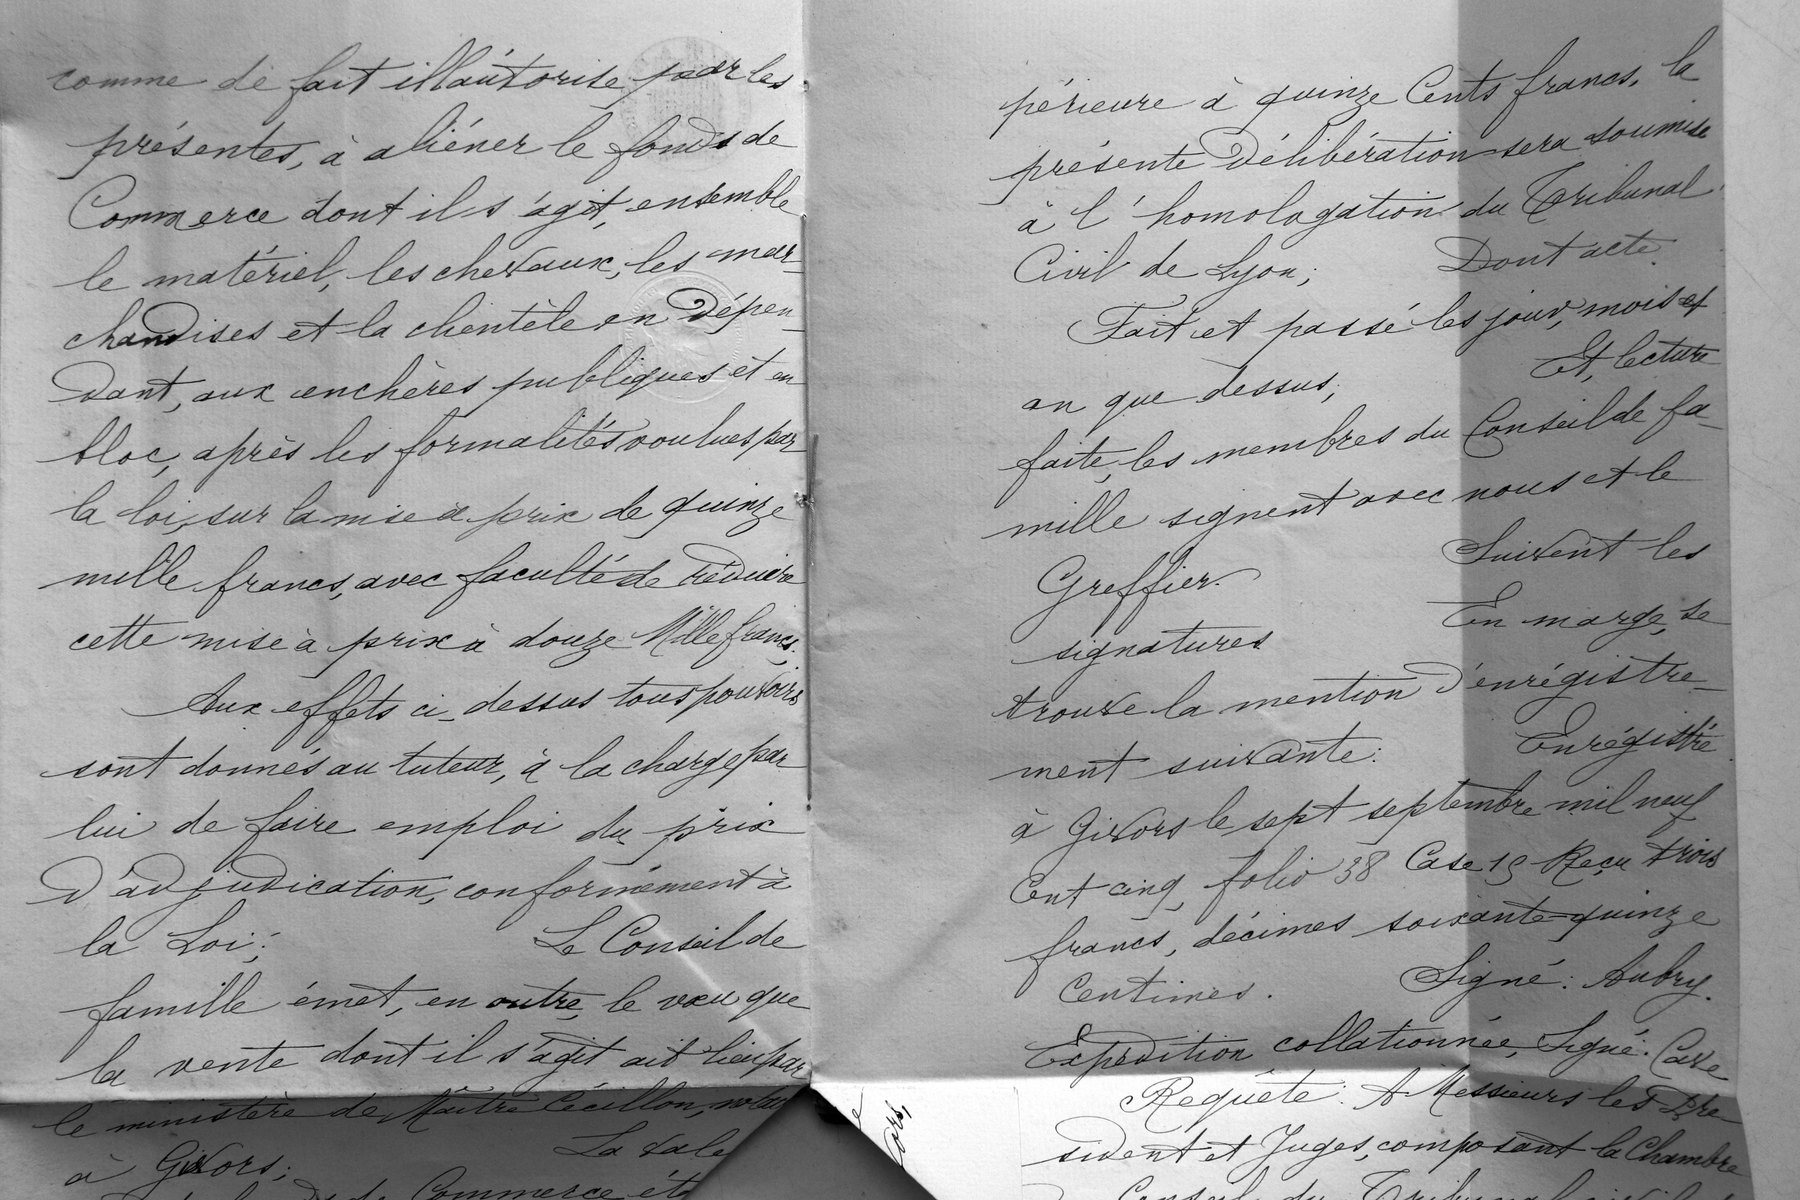 comme de fait ill'autorise par les
présentes, à aliéner le fonds de
Commerce dont il s'agit, ensemble
le matériel, les chevaux, les mar-
chandises et la clientèle en dépen-
dant, aux enchères publiques et en
bloc, après les formalités voulues par
la loi, sur la mise à prix de quinze
mille francs, avec faculté de réduire
cette mise à prix à douze Mille francs.
Aux effets ci-dessus tous pouvoirs
sont donnés au tuteur, à la charge par
lui de faire emploi du prix
d'adjudication, conformément à
la Loi; Le Conseil de
famille émet, en outre, le vœu que
la vente dont il s'agit ait lieu par
le ministère de Maître Cécillon, notaire
à Givors; La vale
Commerce ét
périeure à quinze Cents francs, la
présente Délibération sera soumise
à l'homologation du Tribunal
Civil de Lyon; Dont acte.
Fait et passé les jour, mois et
an que dessus; Et, lecture
faite, les membres du Conseil de fa-
mille signent avec nous et le
Greffier. Suivent les
signatures En marge, se
trouve la mention d'enrégistre-
ment suivante: Enrégistré
à Givors le sept septembre mil neuf
Cent cinq, folio 38 Case 19 Reçu trois
francs, décimes soixante-quinze
Centimes. Signé: Aubry.
Expédition collationnée, Signé: Cave
Requête: A Messieurs les Pré
sident et Juges, composant la Chambre
Conseil du Tribunal civil